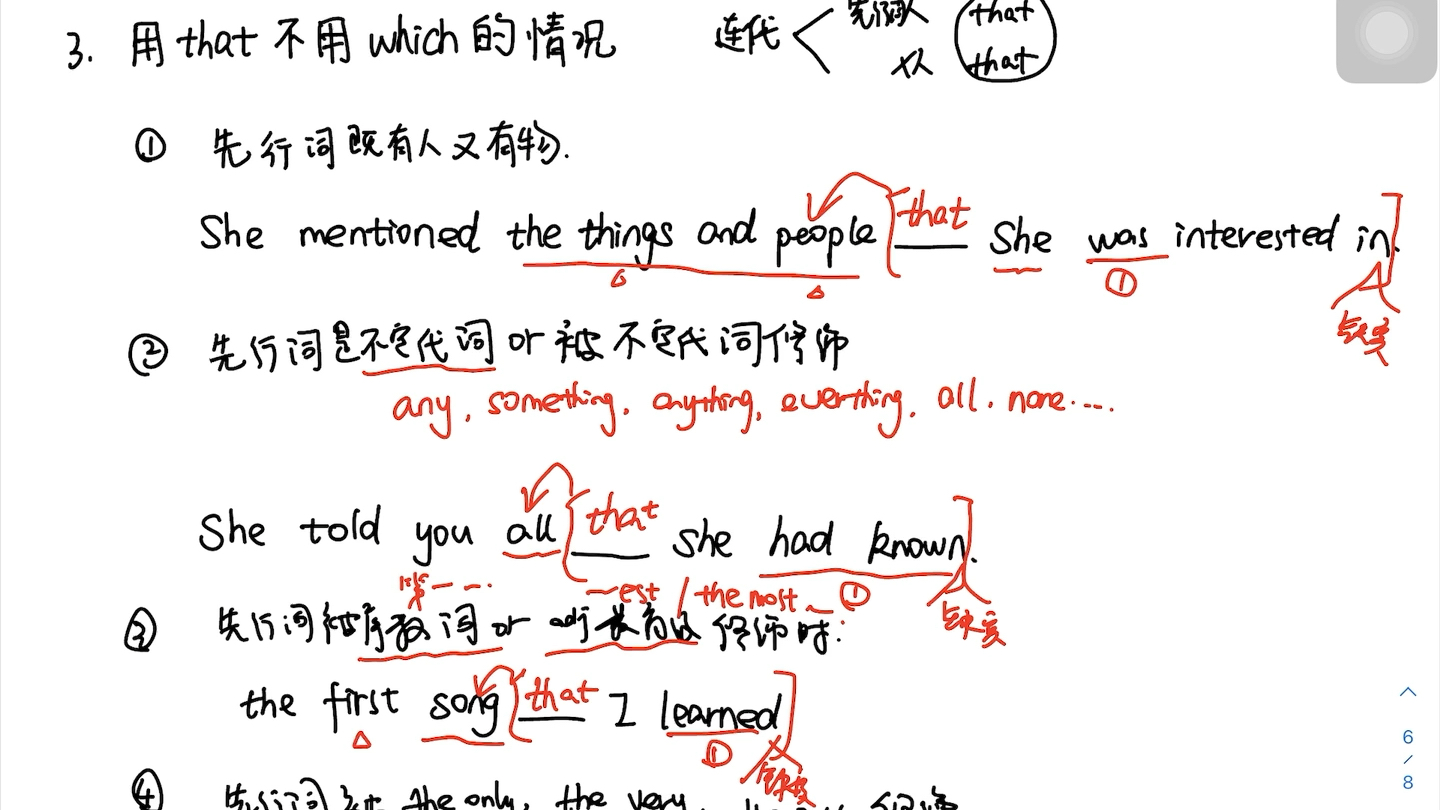 3. 用 that 不用 which 的情况 连代 that
that
① 先行词既有人又有物.
She mentioned the things and people that She was interested in.
①
缺宾
② 先行词是不定代词 or 被不定代词修饰
any, something, anything, everthing, all, none....
She told you all that she had known.
第一... ~est / the most ~ ① 缺宾
③ 先行词被序数词 or adj 最高级 修饰时:
the first song that I learned
① 缺宾
④ 先行词被 the only, the very
6
/
8